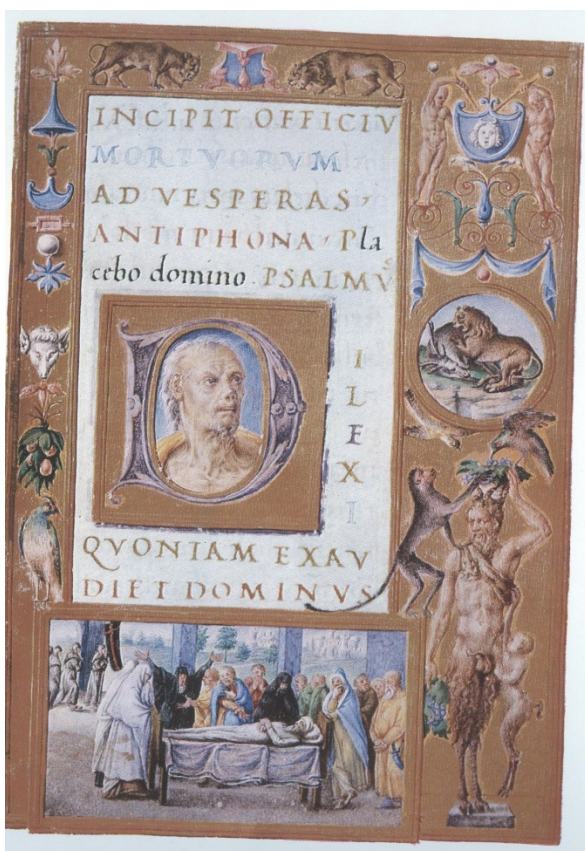 INCIPIT OFFICIV
MORTVORVM
AD VESPERAS,
ANTIPHONA, Pla
cebo domino. PSALMVˢ
D
I
L
E
X
I
QVONIAM EXAV
DIET DOMINVS